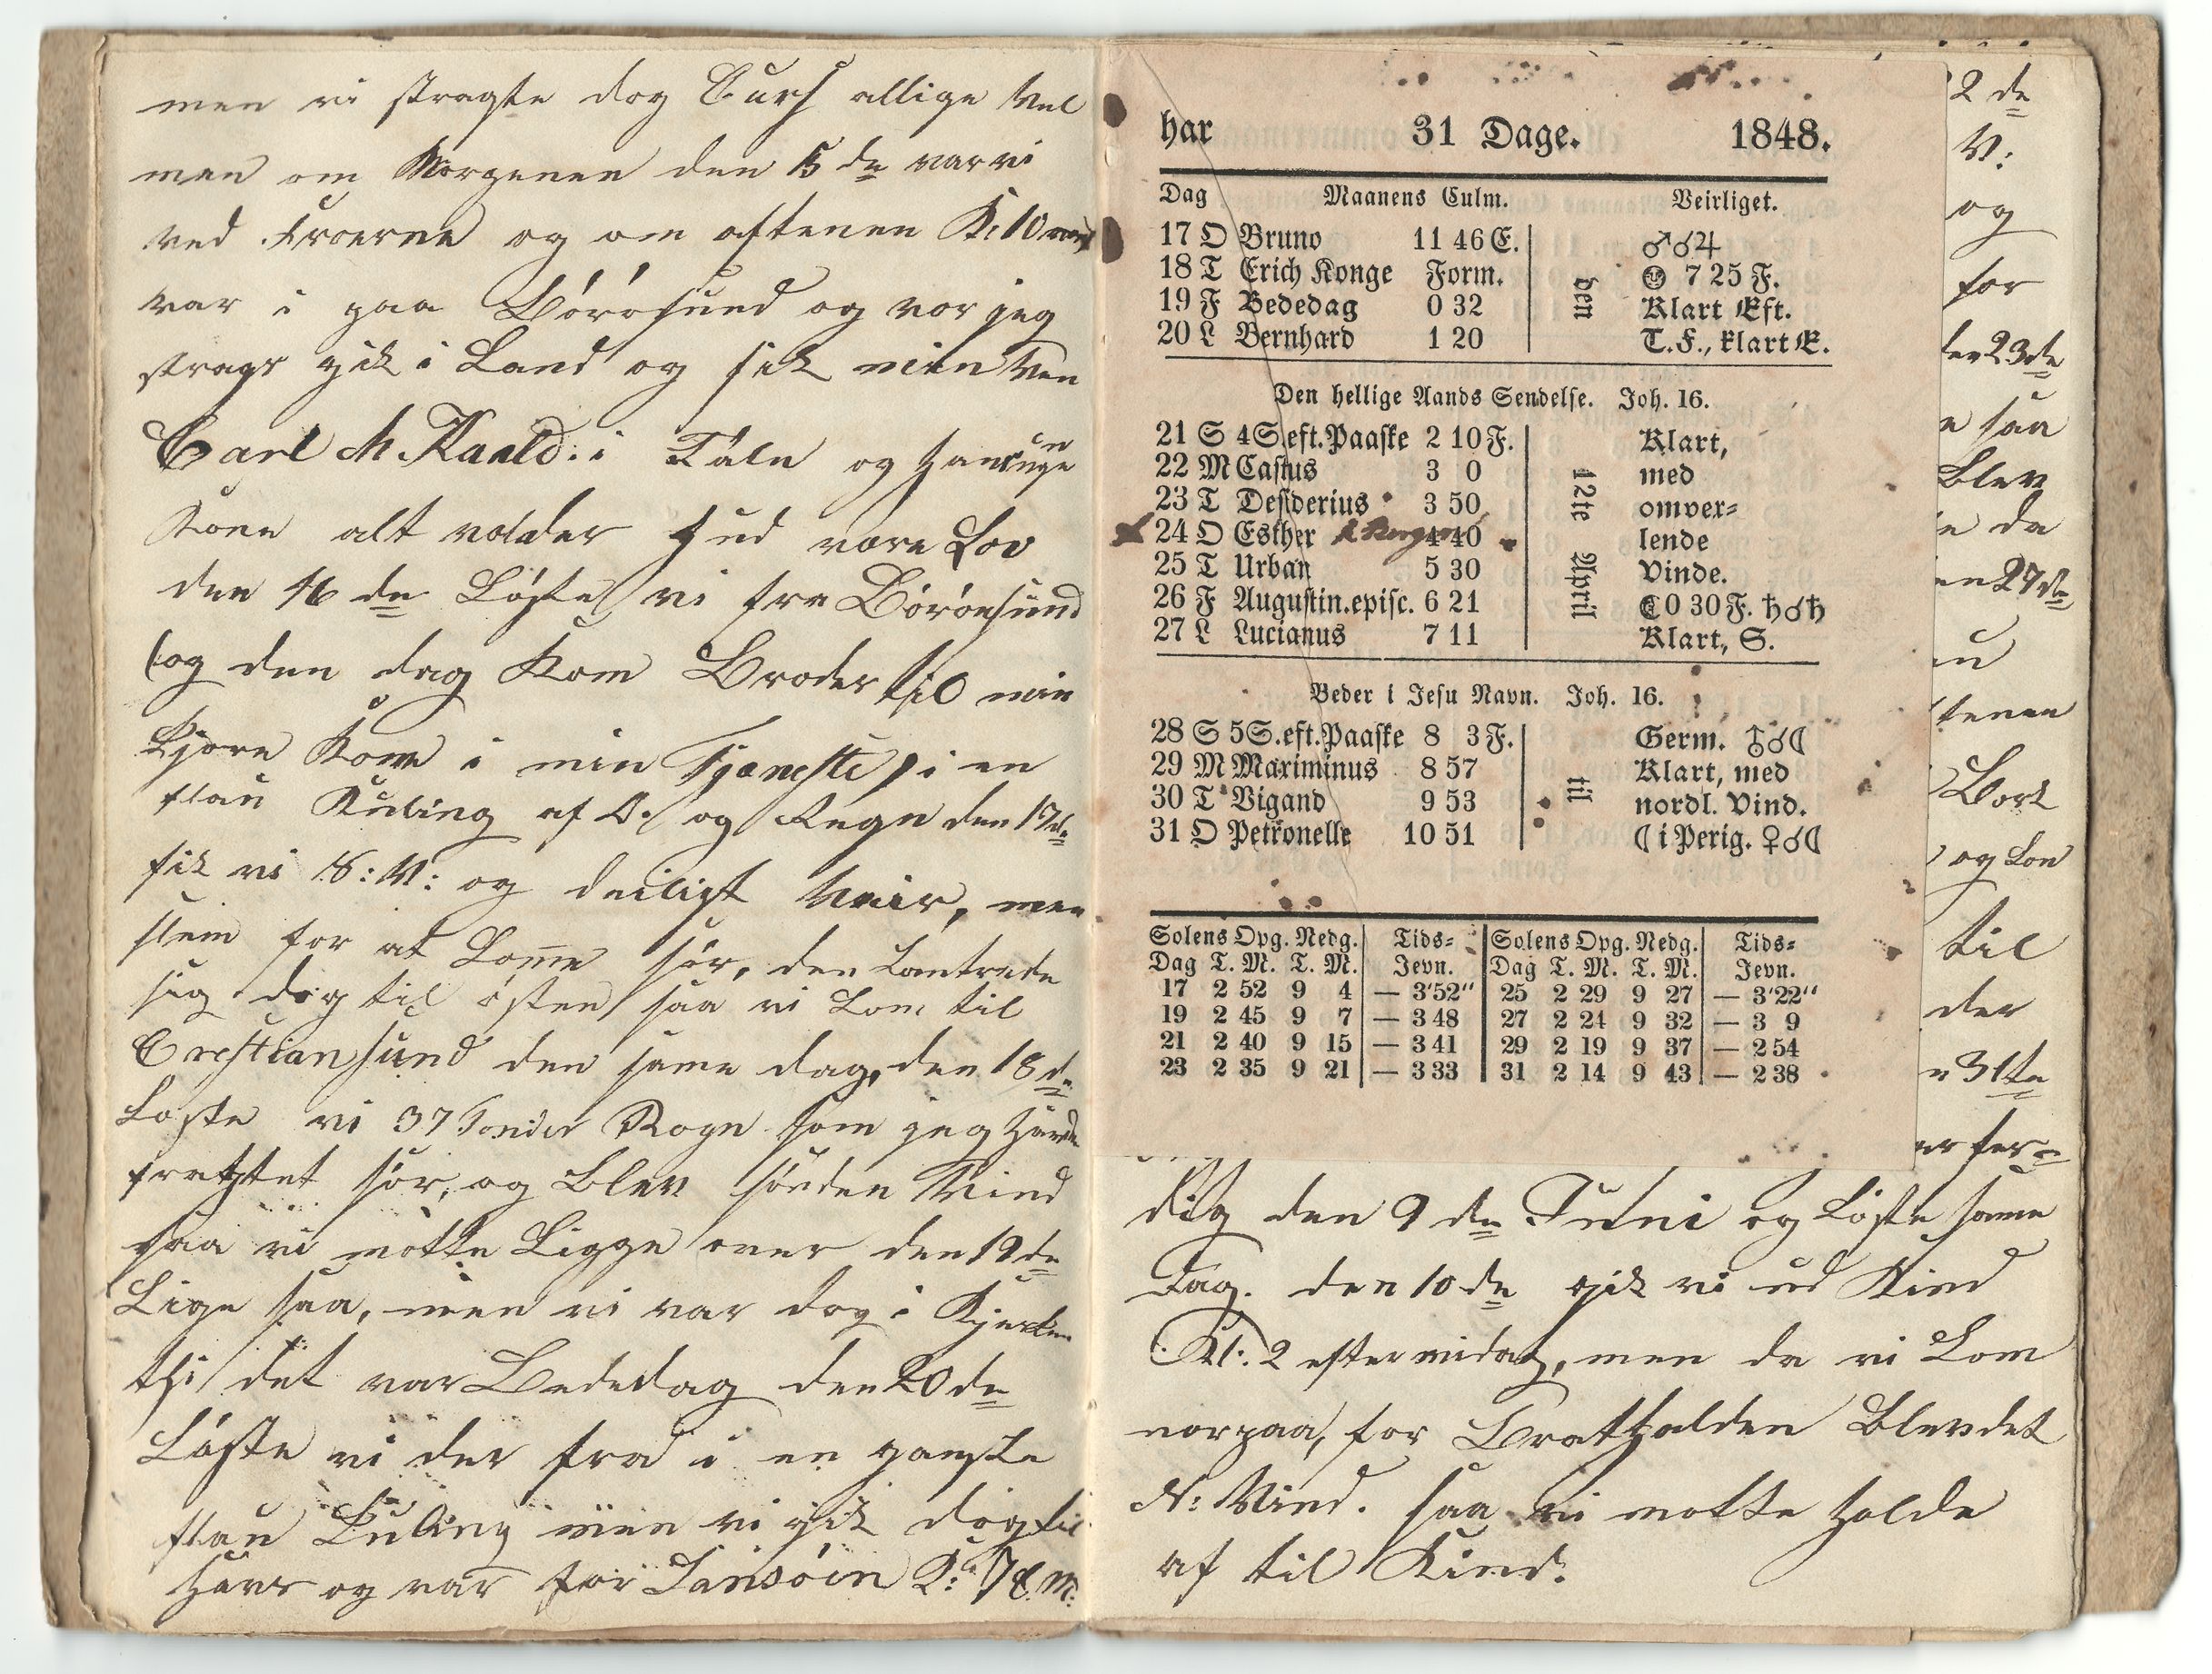 men vi stragte dog Curs allige Vel
men om Morgenen den 15 de var vi
ved Froerne og om aftenen K: 10
var i paa Börösund og vor jeg
strags gik i Land og fik min Ven
Carl M. Kaald. i Tale og Hans unge
Kone alt vel der Gud være Lov
den 16 de Löste vi fra Börösund
(og den dag Kom Broder til min
Kjære Kone i min Tjæneste) i en
flau Kuling af O. og Regn den 17 de
fik vi N: V: og deiligt Veir, men
slem for at Komme sör, den
sig dog til östen saa vi Kom til
Crestiansund den same dag, den 18 de
Loste vi 37 Tonder Rogn som jeg Havde
fragtet sör, og Blev sönden Vind
saa vi motte Ligge over den 19 de
Lige saa, men vi var dog i Kjerken
thi det var Bededag den 20 de
Löste vi der fra i en ganske
flau Kuling men vi gik dog til
Havs og var for K: 7 E. M:
har 31 Dage. 1848.
Dag Maanens Culm. Veirliget.
17 O Bruno 11 46 E. ♂☌♃
18 T Erich Konge Form. 7 25 F.
19 F Bededag 0 32 Klart Eft.
20 L Bernhard 1 20 T. F., klart E.
den
Den hellige Aands Sendelse. Joh. 16.
21 S 4S.eft.Paaske 2 10 F. Klart,
22 M Castus 3 0 med
23 T Desiderius 3 50 omver=
24 O Esther 4 40 lende
25 T Urban 5 30 Vinde.
26 F Augustin.episc. 6 21 ☾ 0 30 F. ♄☌♄
27 L Lucianus 7 11 Klart, S.
12te April
Beder i Jesu Navn. Joh. 16.
28 S 5S.eft.Paaske 8 3 F. Germ. ♁☌☾
29 M Maximinus 8 57 Klart, med
30 T Vigand 9 53 nordl. Vind.
31 O Petronelle 10 51 ☾ i Perig. ♀☌☾
til
Solens Opg. Nedg. Tids= Solens Opg. Nedg. Tids=
Dag T. M. T. M. Jevn. Dag T. M. T. M. Jevn.
17 2 52 9 4 — 3'52" 25 2 29 9 27 — 3'22"
19 2 45 9 7 — 3 48 27 2 24 9 32 — 3 9
21 2 40 9 15 — 3 41 29 2 19 9 37 — 2 54
23 2 35 9 21 — 3 33 31 2 14 9 43 — 2 38
2 de
V:
og
for
23 de
saa
Blev
da
27 de
Bort
og Lon
til
der
31 te
dig den 9 de Juni og Löste same
Dag. den 10 de gik vi ud Kind
Kl: 2 eftermidag, men da vi Kom
norpaa, for Bratholden Blev det
N: Vind. saa vi motte Holde
af til Kind.